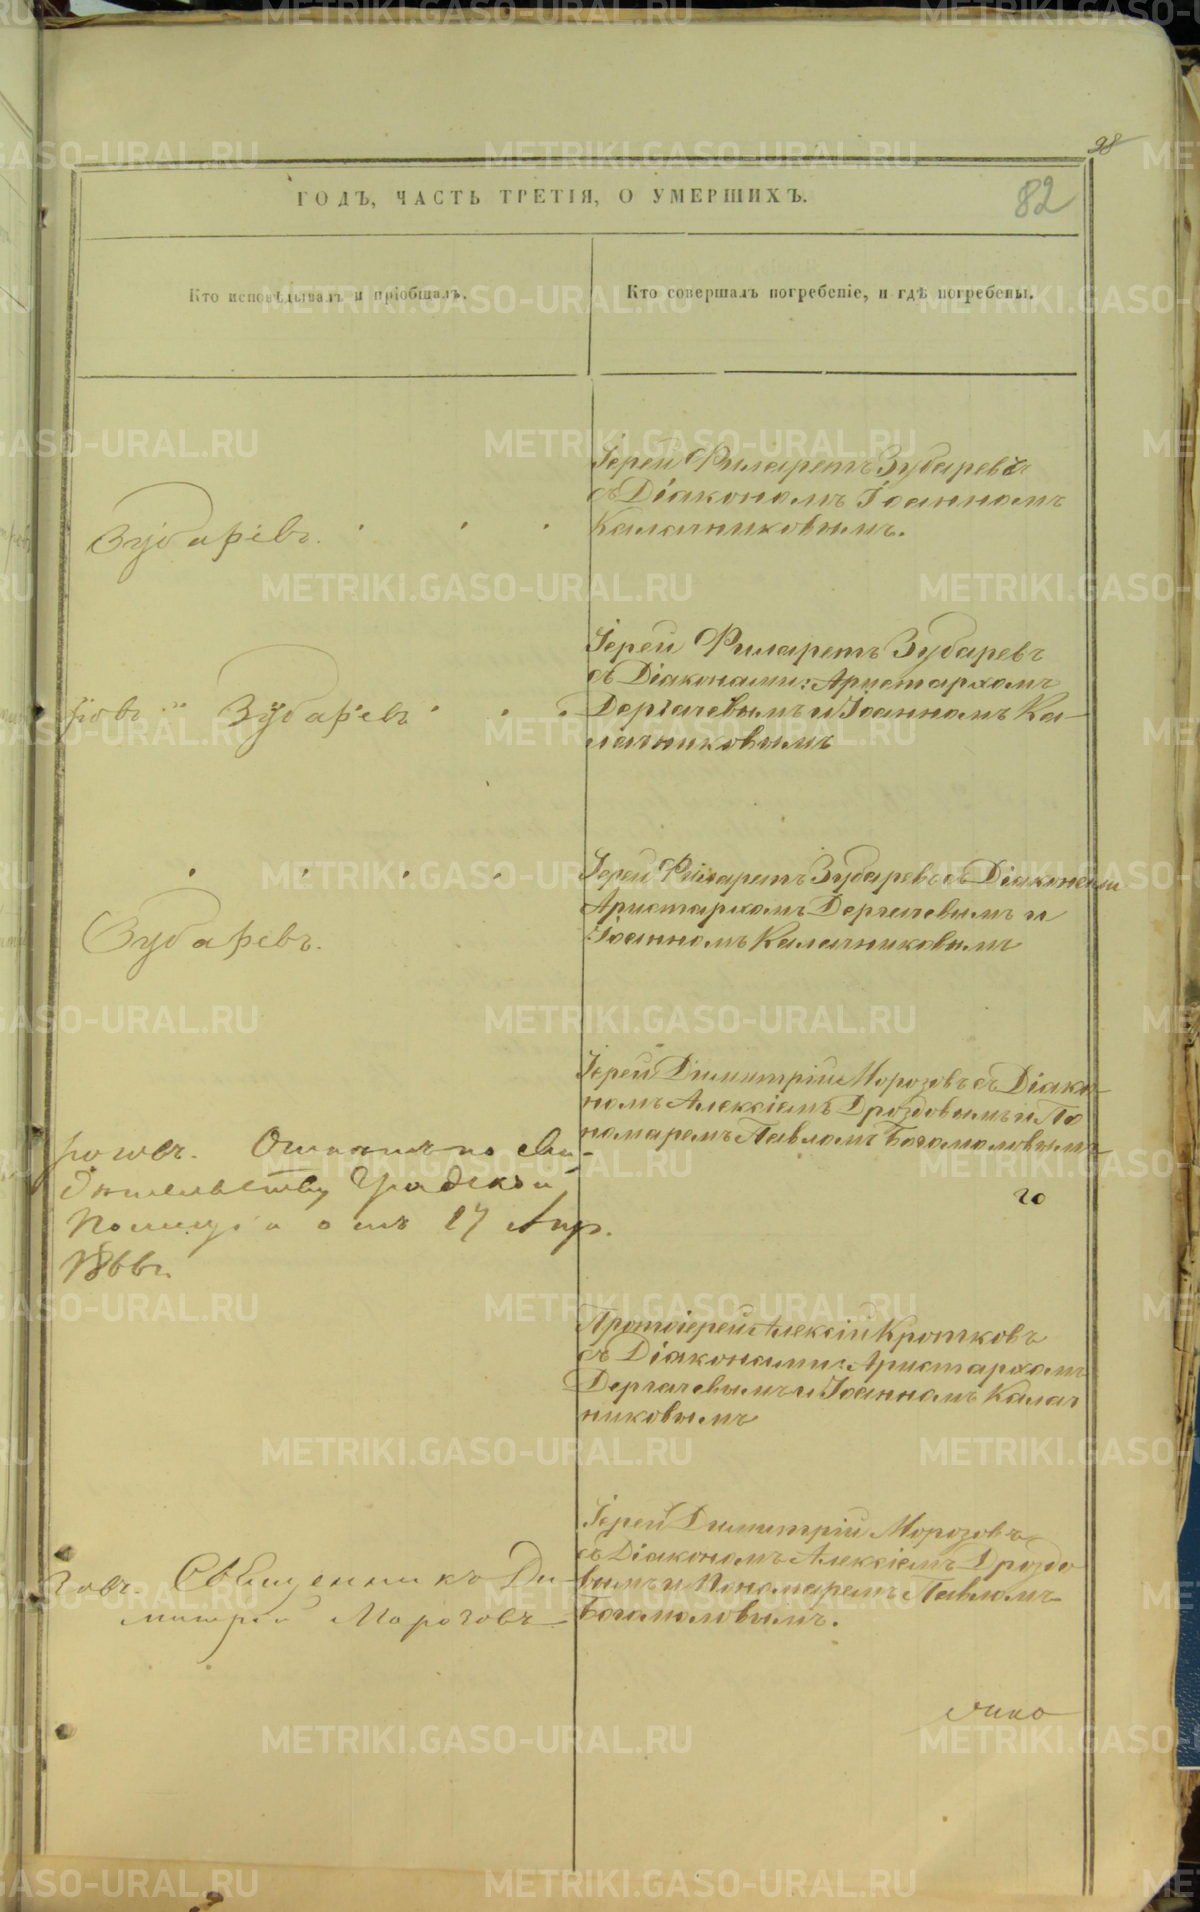 98
ГОДЪ, ЧАСТЬ ТРЕТІЯ, О УМЕРШИХЪ.
82
Кто исповѣдывалъ и пріобщалъ.
Кто совершалъ погребеніе, и гдѣ погребены.
Іерей Филаретъ Зубаревъ
съ Діакономъ Іоанномъ
Калачниковымъ.
Зубаревъ.
Іерей Филаретъ Зубаревъ
съ Діаконами: Аристархомъ
Дергачевымъ и Іоанномъ Ка-
лачниковымъ
Зубаревъ
Іерей Филаретъ Зубаревъ съ Діаконами
Аристархомъ Дергачевымъ и
Іоанномъ Калачниковымъ
Зубаревъ.
Іерей Димитрій Морозовъ съ Діако-
номъ Алексіемъ Дроздовымъ и По
номаремъ Павломъ Богомоловымъ
по сви-
дѣтельству Градской
Полиціи отъ 27 Апр.
1866 г.
го
Протоіерей Алексій Кротковъ
съ Діаконами: Аристархомъ
Дергачевымъ и Іоанномъ Калач
никовымъ
Іерей Димитрій Морозовъ
съ Діакономъ Алексіемъ Дроздо
вымъ и Пономаремъ Павломъ
Богомоловымъ.
Священникъ Ди-
митрій Морозовъ
METRIKI.GASO-URAL.RU